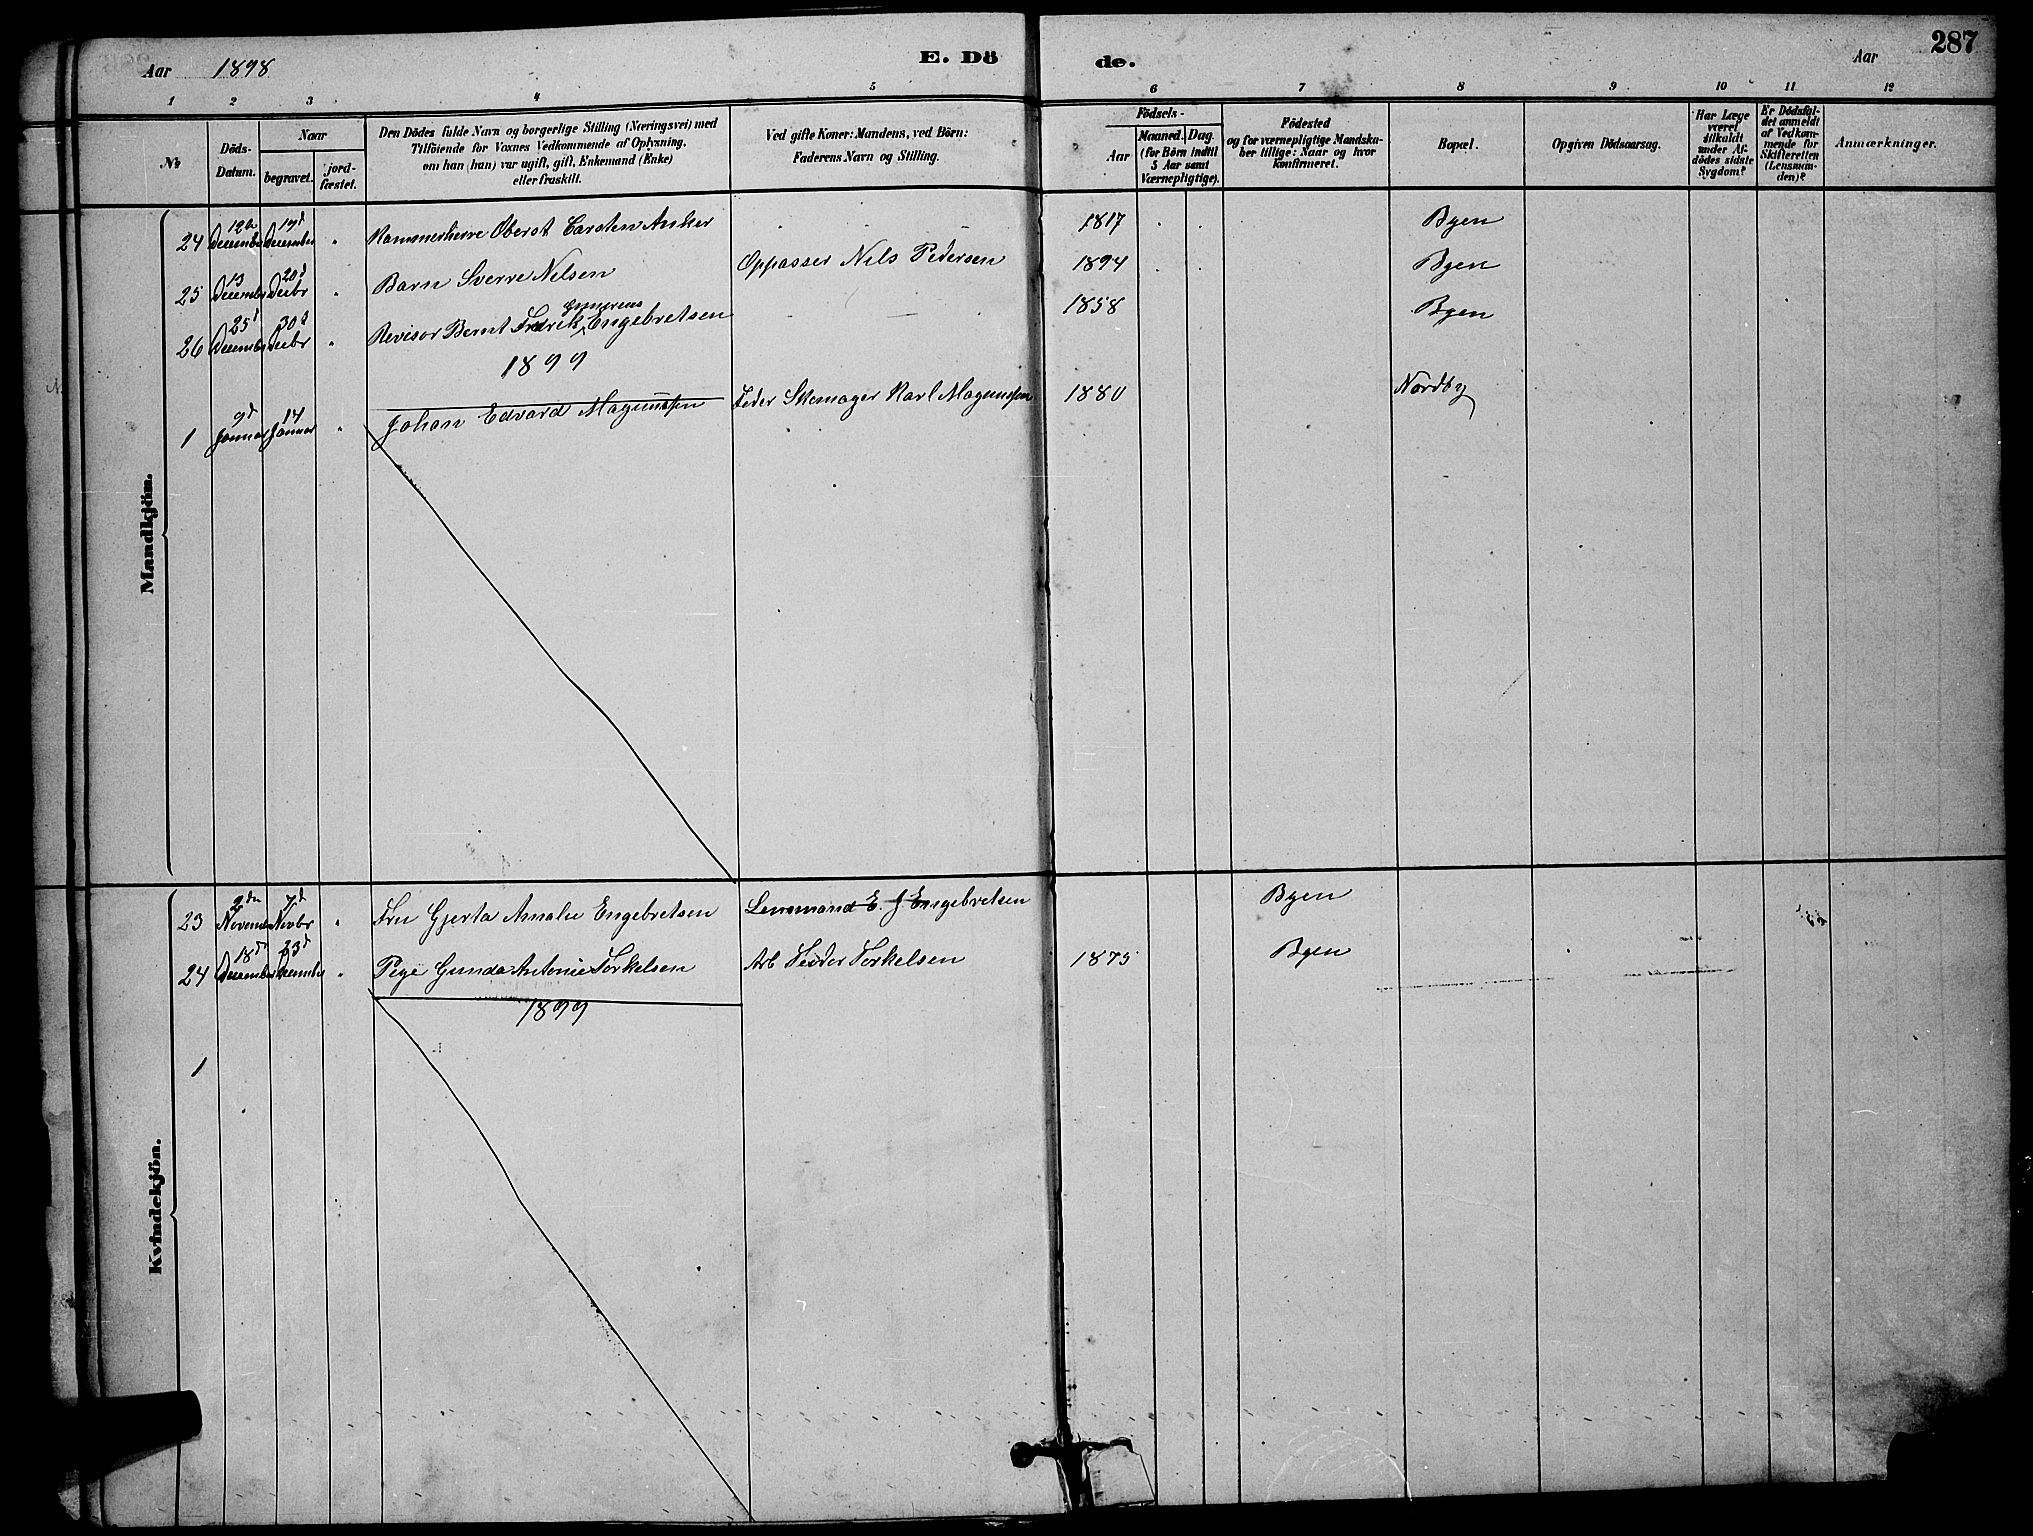 Aar 1898
E. Dö
de.
Aar
287
1 2 3 4 5 6 7 8 9 10 11 12
No
Döds-
Datum.
Naar
begravet.
jord-
fæstet.
Den Dödes fulde Navn og borgerlige Stilling (Næringsvei) med
Tilföiende for Voxnes Vedkommende af Oplysning,
om han (hun) var ugift, gift, Enkemand (Enke)
eller fraskilt.
Ved gifte Koner: Mandens, ved Börn:
Faderens Navn og Stilling.
Födsels-
Aar
Maaned.
Dag.
(for Börn indtil
5 Aar samt
Værnepligtige).
Födested
og for værnepligtige Mandska-
ber tillige: Naar og hvor
konfirmeret.
Bopæl.
Opgiven Dödsaarsag.
Har Læge
været
tilkaldt
under Af-
dödes sidste
Sygdom?
Er Dödsfal-
det anmeldt
af Vedkom-
mende for
Skifteretten
(Lensman-
den)?
Anmærkninger.
Mandkjön.
24 12te December 17d December " Kammerherre Oberst Carsten Anker 1817 Byen
25 13 December 20d Decbr " Barn Sverre Nilsen Oppasser Nils Pedersen 1894 Byen
26 25d December 30d Decbr " Revisor Bernt Fredrik Engebretsen 1858 Byen
1899
1 9d Januar 14 Januar " Johan Edvard Magnussen Feder Skomager Karl Magnussen 1880 Nordby
Kvindekjön.
23 2den November 7d Novbr " Fru Gjerta Amalie Engebretsen Lensmand E. J. Engebretsen Byen
24 18d December 23d December " Pige Gunda Antonie Torkelsen Arb Peder Torkelsen 1875 Byen
1899
1